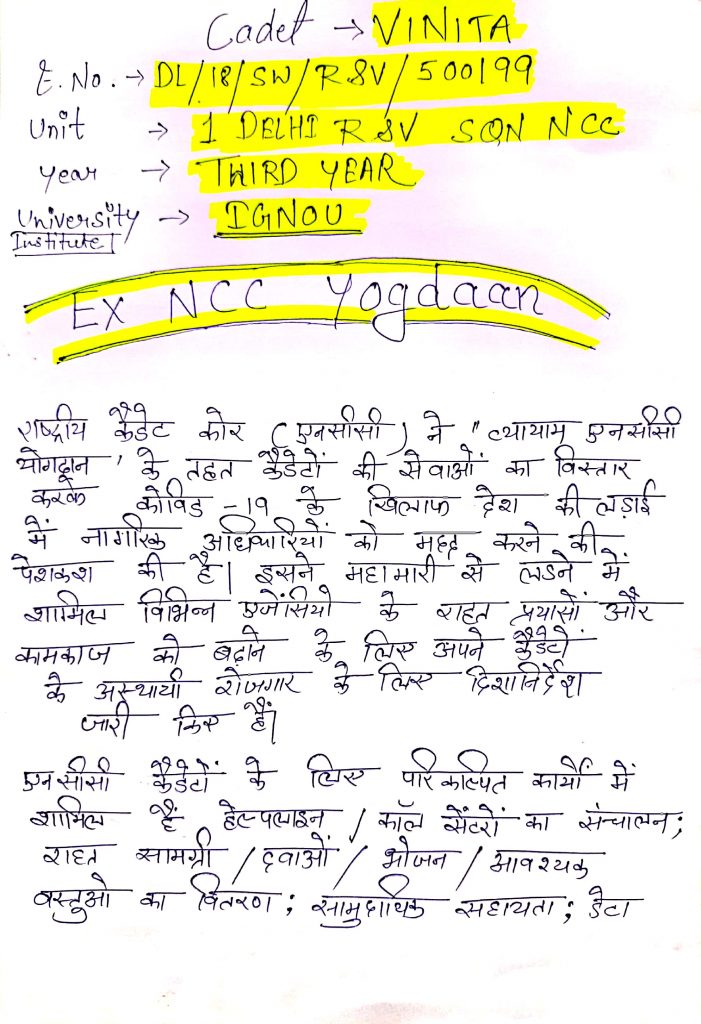 Cadet → VINITA
E. No. → DL/18/SW/R&V/500199
Unit → 1 DELHI R&V SQN NCC
Year → THIRD YEAR
University → IGNOU
Institute
Ex NCC Yogdaan
राष्ट्रीय कैडेट कोर (एनसीसी) ने "व्यायाम एनसीसी
योगदान' के तहत कैडेटों की सेवाओं का विस्तार
करके कोविड -19 के खिलाफ देश की लड़ाई
में नागरिक अधिकारियों को मदद करने की
पेशकश की है| इसने महामारी से लडने में
शामिल विभिन्न एजेंसियो के राहत प्रयासों और
कामकाज को बढ़ाने के लिए अपने कैडेटों
के अस्थायी रोजगार के लिए दिशानिर्देश
जारी किए हैं|
एनसीसी कैडेटों के लिए परिकल्पित कार्यों में
शामिल हैं हेल्पलाइन / कॉल सेंटरों का संचालन;
राहत सामग्री / दवाओं / भोजन / आवश्यक
वस्तुओ का वितरण; सामुदायिक सहायता; डेटा